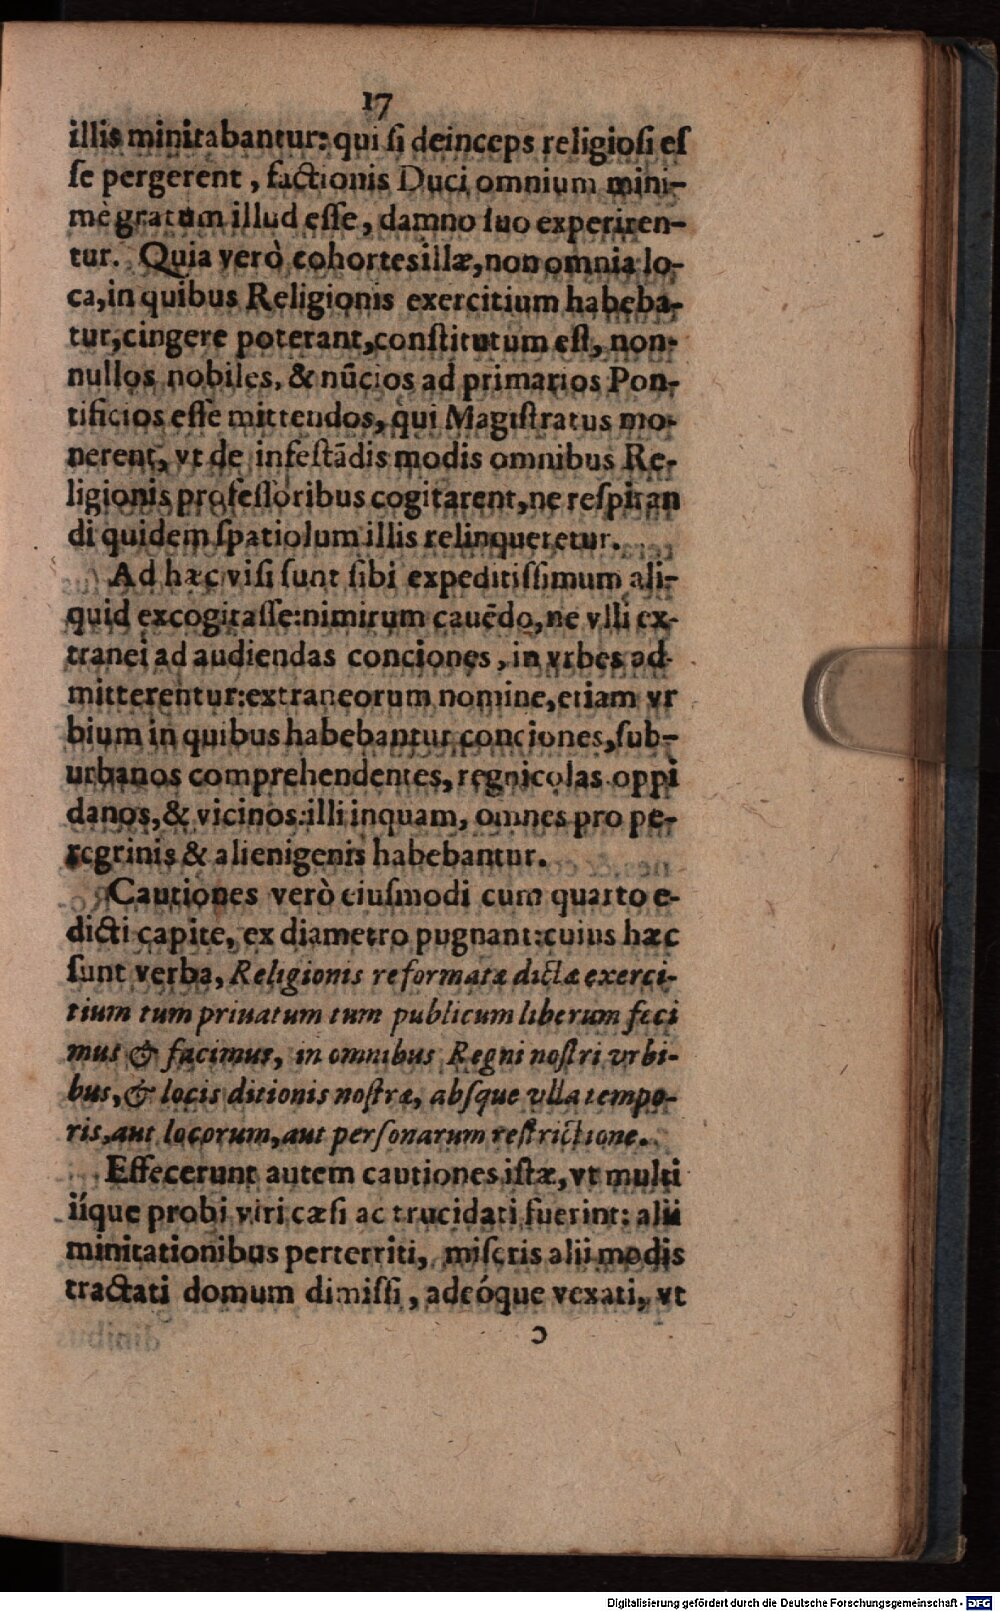 17
illis minitabantur: qui ſi deinceps religioſi eſ
ſe pergerent, factionis Duci omnium mini-
mè gratum illud eſſe, damno ſuo experiren-
tur. Quia verò cohortes illæ, non omnia lo-
ca, in quibus Religionis exercitium habeba-
tur, cingere poterant, conſtitutum eſt, non-
nullos nobiles, & nũcios ad primarios Pon-
tificios eſſe mittendos, qui Magiſtratus mo-
nerent, vt de infeſtãdis modis omnibus Re-
ligionis profeſſoribus cogitarent, ne reſpiran
di quidem ſpatiolum illis relinqueretur.
Ad hæc viſi ſunt ſibi expeditiſſimum ali-
quid excogitaſſe: nimirum cauẽdo, ne vlli ex-
tranei ad audiendas conciones, in vrbes ad-
mitterentur: extraneorum nomine, etiam vr
bium in quibus habebantur conciones, ſub-
urbanos comprehendentes, regnicolas oppi
danos, & vicinos: illi inquam, omnes pro pe-
regrinis & alienigenis habebantur.
Cautiones verò eiuſmodi cum quarto e-
dicti capite, ex diametro pugnant: cuius hæc
ſunt verba, Religionis reformatæ dictæ exerci-
tium tum priuatum tum publicum liberum feci
mus & facimus, in omnibus Regni noſtri vrbi-
bus, & locis ditionis noſtræ, abſque vlla tempo-
ris, aut locorum, aut perſonarum reſtrictione.
Effecerunt autem cautiones iſtæ, vt multi
iíque probi viri cæſi ac trucidati fuerint: alii
minitationibus perterriti, miſeris alii modis
tractati domum dimiſſi, adeóque vexati, vt
c
Digitalisierung gefördert durch die Deutsche Forschungsgemeinschaft - DFG